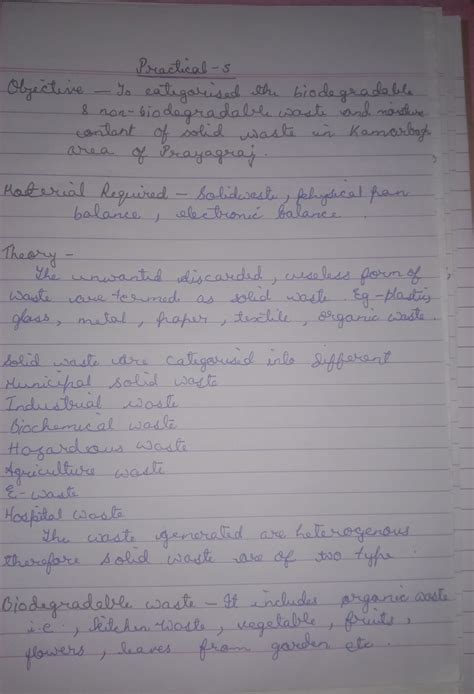 Practical-5
Objective — To categorised the biodegradable
& non-biodegradable waste and moisture
contant of solid waste in Kamorbagh
area of Prayagraj.
Material Required — Solidwaste, physical pan
balance, electronic balance.
Theory -
The unwanted discarded, useless form of
waste are termed as solid waste. Eg-plastics,
glass, metal, paper, textile, organic waste.
Solid waste are categorised into different
Municipal solid waste
Industrial waste
Biochemical waste
Hazardous waste
Agriculture waste
E-waste
Hospital waste
The waste generated are heterogenous
therefore solid waste are of two type.
Biodegradable waste — It includes organic waste
i.e., kitchen waste, vegetable, fruits,
flowers, leaves from garden etc.